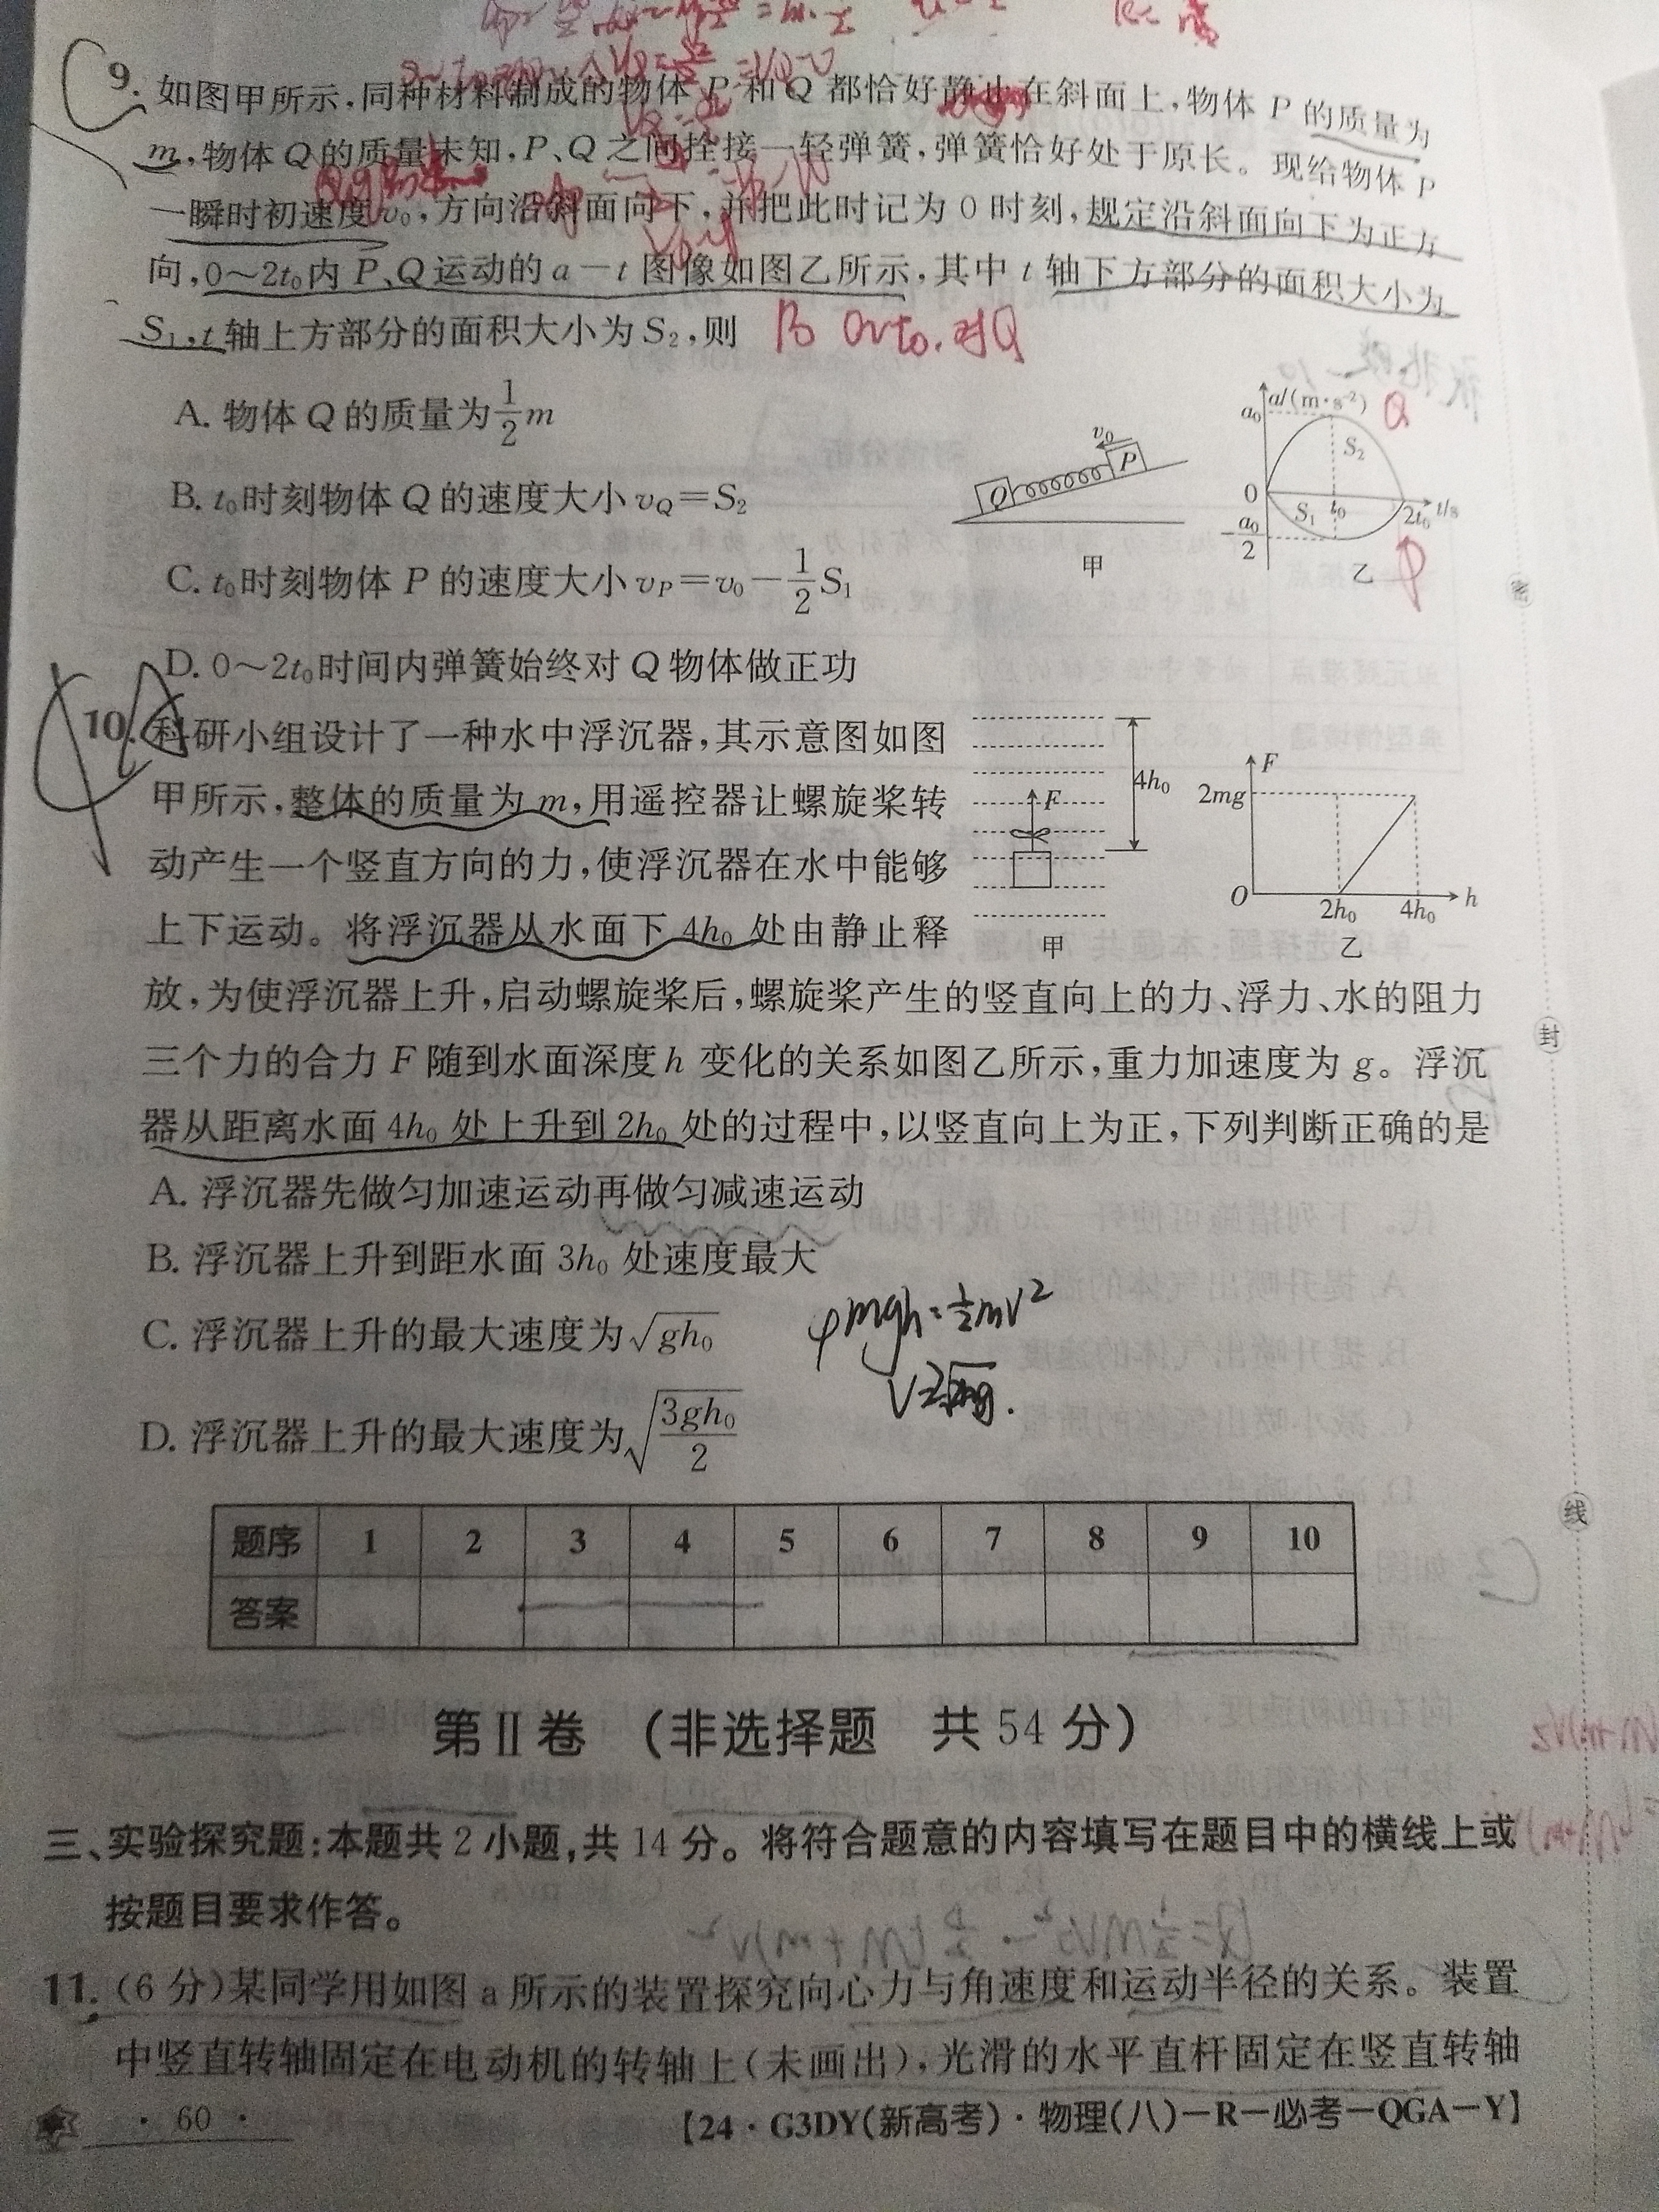 9. 如图甲所示,同种材料制成的物体 P 和 Q 都恰好静止在斜面上,物体 P 的质量为
m,物体 Q 的质量未知,P、Q 之间拴接一轻弹簧,弹簧恰好处于原长。现给物体 P
一瞬时初速度 v₀,方向沿斜面向下,并把此时记为 0 时刻,规定沿斜面向下为正方
向,0~2t₀内 P、Q 运动的 a-t 图像如图乙所示,其中 t 轴下方部分的面积大小为
S₁,t 轴上方部分的面积大小为 S₂,则
B 0~t₀. 对Q
A. 物体 Q 的质量为 1/2 m
B. t₀时刻物体 Q 的速度大小 v_Q=S₂
C. t₀时刻物体 P 的速度大小 v_P=v₀-1/2 S₁
D. 0~2t₀时间内弹簧始终对 Q 物体做正功
v₀
P
Q
甲
a/(m·s⁻²)
Q
a₀
S₂
0
S₁
t₀
2t₀
t/s
-a₀/2
乙
P
10. 科研小组设计了一种水中浮沉器,其示意图如图
甲所示,整体的质量为 m,用遥控器让螺旋桨转
动产生一个竖直方向的力,使浮沉器在水中能够
上下运动。将浮沉器从水面下 4h₀ 处由静止释
放,为使浮沉器上升,启动螺旋桨后,螺旋桨产生的竖直向上的力、浮力、水的阻力
三个力的合力 F 随到水面深度 h 变化的关系如图乙所示,重力加速度为 g。浮沉
器从距离水面 4h₀ 处上升到 2h₀ 处的过程中,以竖直向上为正,下列判断正确的是
4h₀
F
甲
F
2mg
O
2h₀
4h₀
h
乙
A. 浮沉器先做匀加速运动再做匀减速运动
B. 浮沉器上升到距水面 3h₀ 处速度最大
C. 浮沉器上升的最大速度为√(gh₀)
D. 浮沉器上升的最大速度为√(3gh₀/2)
mgh=½mv²
题序 1 2 3 4 5 6 7 8 9 10
答案
第Ⅱ卷 (非选择题 共 54 分)
三、实验探究题:本题共 2 小题,共 14 分。将符合题意的内容填写在题目中的横线上或
按题目要求作答。
11. (6 分)某同学用如图 a 所示的装置探究向心力与角速度和运动半径的关系。装置
中竖直转轴固定在电动机的转轴上(未画出),光滑的水平直杆固定在竖直转轴
· 60 ·
【24·G3DY(新高考)·物理(八)-R-必考-QGA-Y】
密
封
线